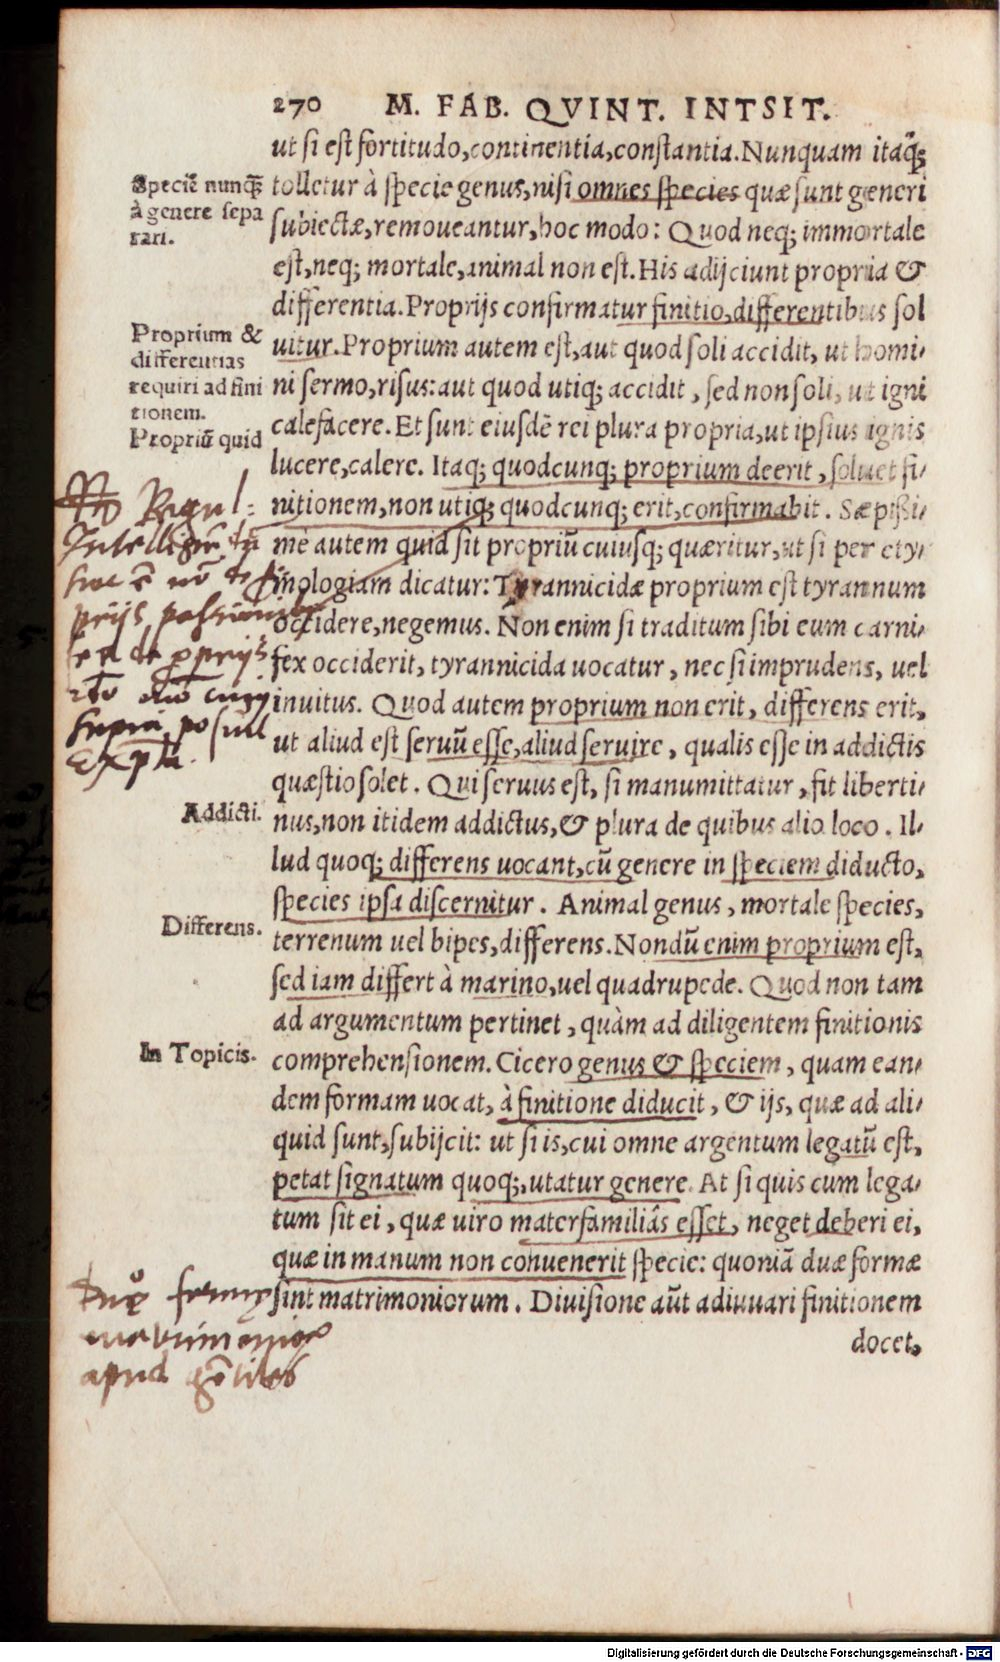 270 M. FAB. QVINT. INTSIT.
ut si est fortitudo, continentia, constantia. Nunquam itaq̃;
Speciē nunq̃ȝ
à genere sepa
rari.
tolletur à specie genus, nisi omnes species quæ sunt generi
subiectæ, remoueantur, hoc modo: Quod neq; immortale
est, neq; mortale, animal non est. His adijciunt propria &
differentia. Proprijs confirmatur finitio, differentibus sol
Proprium &
differentias
requiri ad fini
tionem.
Propriū quid
uitur. Proprium autem est, aut quod soli accidit, ut homi-
ni sermo, risus: aut quod utiq; accidit, sed non soli, ut igni
calefacere. Et sunt eiusdē rei plura propria, ut ipsius ignis
lucere, calere. Itaq; quodcunq; proprium deerit, soluet fi-
nitionem, non utiq; quodcunq; erit, confirmabit. Sæpissi-
mè autem quid sit propriū cuiusq; quæritur, ut si per ety-
mologiam dicatur: Tyrannicidæ proprium est tyrannum
occidere, negemus. Non enim si traditum sibi eum carni-
fex occiderit, tyrannicida uocatur, nec si imprudens, uel
inuitus. Quod autem proprium non erit, differens erit,
ut aliud est seruū esse, aliud seruire, qualis esse in addictis
quæstio solet. Qui seruus est, si manumittatur, fit liberti-
Addicti.
nus, non itidem addictus, & plura de quibus alio loco. Il-
lud quoq; differens uocant, cū genere in speciem diducto,
species ipsa discernitur. Animal genus, mortale species,
Differens.
terrenum uel bipes, differens. Nondū enim proprium est,
sed iam differt à marino, uel quadrupede. Quod non tam
ad argumentum pertinet, quàm ad diligentem finitionis
In Topicis.
comprehensionem. Cicero genus & speciem, quam ean-
dem formam uocat, à finitione diducit, & ijs, quæ ad ali-
quid sunt, subijcit: ut si is, cui omne argentum legatū est,
petat signatum quoq;, utatur genere. At si quis cum lega-
tum sit ei, quæ uiro materfamiliâs esset, neget deberi ei,
quæ in manum non conuenerit specie: quoniā duæ formæ
sint matrimoniorum. Diuisione aūt adiuuari finitionem
docet.
apud gētiles
Digitalisierung gefördert durch die Deutsche Forschungsgemeinschaft - DFG